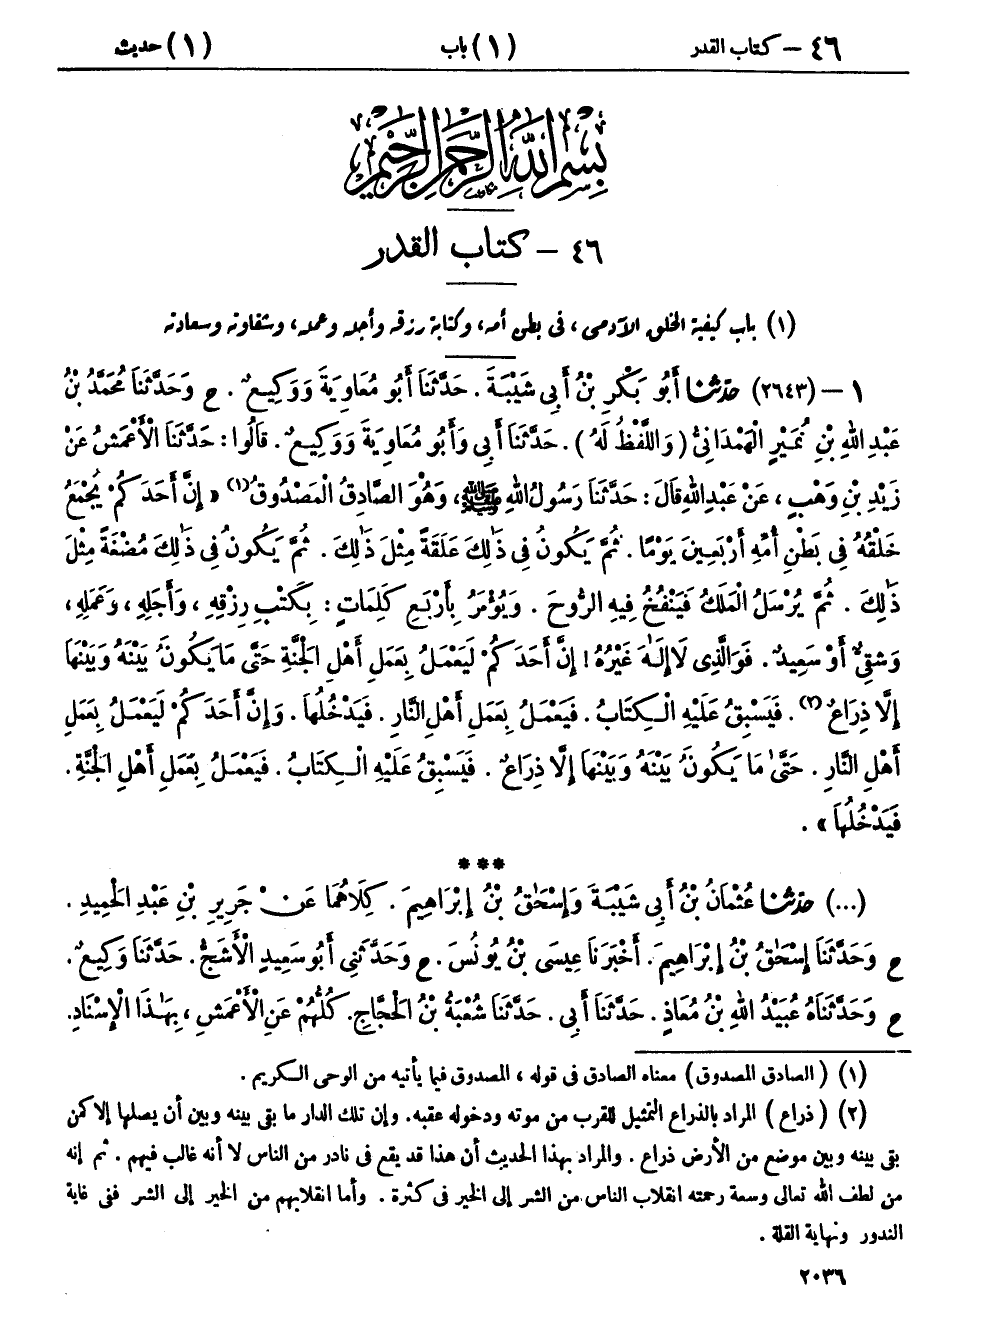 ٤٦ – كتاب القدر (١) باب (١) حديث
بِسْمِ اللَّهِ الرَّحْمَنِ الرَّحِيمِ
٤٦ – كتاب القدر
(١) باب كيفية الخلق الآدمى، فى بطن أمه، وكتابة رزقه وأجله وعمله، وشقاوته وسعادته
١ – (٢٦٤٣) حَدَّثَنَا أَبُو بَكْرِ بْنُ أَبِي شَيْبَةَ . حَدَّثَنَا أَبُو مُعَاوِيَةَ وَوَكِيعٌ . ح وَحَدَّثَنَا مُحَمَّدُ بْنُ
عَبْدِ اللهِ بْنِ نُمَيْرٍ الْهَمْدَانِيُّ (وَاللَّفْظُ لَهُ) . حَدَّثَنَا أَبِي وَأَبُو مُعَاوِيَةَ وَوَكِيعٌ . قَالُوا : حَدَّثَنَا الْأَعْمَشُ عَنْ
زَيْدِ بْنِ وَهْبٍ ، عَنْ عَبْدِ اللهِ قَالَ : حَدَّثَنَا رَسُولُ اللهِ ﷺ، وَهُوَ الصَّادِقُ الْمَصْدُوقُ(١) « إِنَّ أَحَدَكُمْ يُجْمَعُ
خَلْقُهُ فِي بَطْنِ أُمِّهِ أَرْبَعِينَ يَوْمًا . ثُمَّ يَكُونُ فِي ذَٰلِكَ عَلَقَةً مِثْلَ ذَٰلِكَ . ثُمَّ يَكُونُ فِي ذَٰلِكَ مُضْغَةً مِثْلَ
ذَٰلِكَ . ثُمَّ يُرْسَلُ الْمَلَكُ فَيَنْفُخُ فِيهِ الرُّوحَ . وَيُؤْمَرُ بِأَرْبَعِ كَلِمَاتٍ : بِكَتْبِ رِزْقِهِ ، وَأَجَلِهِ ، وَعَمَلِهِ ،
وَشَقِيٌّ أَوْ سَعِيدٌ . فَوَالَّذِي لَا إِلَٰهَ غَيْرُهُ ! إِنَّ أَحَدَكُمْ لَيَعْمَلُ بِعَمَلِ أَهْلِ الْجَنَّةِ حَتَّى مَا يَكُونُ بَيْنَهُ وَبَيْنَهَا
إِلَّا ذِرَاعٌ(٢) . فَيَسْبِقُ عَلَيْهِ الْكِتَابُ . فَيَعْمَلُ بِعَمَلِ أَهْلِ النَّارِ . فَيَدْخُلُهَا . وَإِنَّ أَحَدَكُمْ لَيَعْمَلُ بِعَمَلِ
أَهْلِ النَّارِ . حَتَّىٰ مَا يَكُونُ بَيْنَهُ وَبَيْنَهَا إِلَّا ذِرَاعٌ . فَيَسْبِقُ عَلَيْهِ الْكِتَابُ . فَيَعْمَلُ بِعَمَلِ أَهْلِ الْجَنَّةِ .
فَيَدْخُلُهَا » .
***
(...) حَدَّثَنَا عُثْمَانُ بْنُ أَبِي شَيْبَةَ وَإِسْحَٰقُ بْنُ إِبْرَاهِيمَ . كِلَاهُمَا عَنْ جَرِيرِ بْنِ عَبْدِ الْحَمِيدِ .
ح وَحَدَّثَنَا إِسْحَٰقُ بْنُ إِبْرَاهِيمَ . أَخْبَرَنَا عِيسَى بْنُ يُونُسَ . ح وَحَدَّثَنِي أَبُو سَعِيدٍ الْأَشَجُّ . حَدَّثَنَا وَكِيعٌ .
ح وَحَدَّثَنَاهُ عُبَيْدُ اللهِ بْنُ مُعَاذٍ . حَدَّثَنَا أَبِي . حَدَّثَنَا شُعْبَةُ بْنُ الْحَجَّاجِ. كُلُّهُمْ عَنِ الْأَعْمَشِ ، بِهَٰذَا الْإِسْنَادِ.
(١) (الصادق المصدوق) معناه الصادق فى قوله ، المصدوق فيما يأتيه من الوحى الكريم .
(٢) (ذراع) المراد بالذراع التمثيل للقرب من موته ودخوله عقبه. وإن تلك الدار ما بقى بينه وبين أن يصلها إلا كمن
بقى بينه وبين موضع من الأرض ذراع . والمراد بهذا الحديث أن هذا قد يقع فى نادر من الناس لا أنه غالب فيهم . ثم إنه
من لطف الله تعالى وسعة رحمته انقلاب الناس من الشر إلى الخير فى كثرة . وأما انقلابهم من الخير إلى الشر ففى غاية
الندور ونهاية القلة .
٢٠٣٦